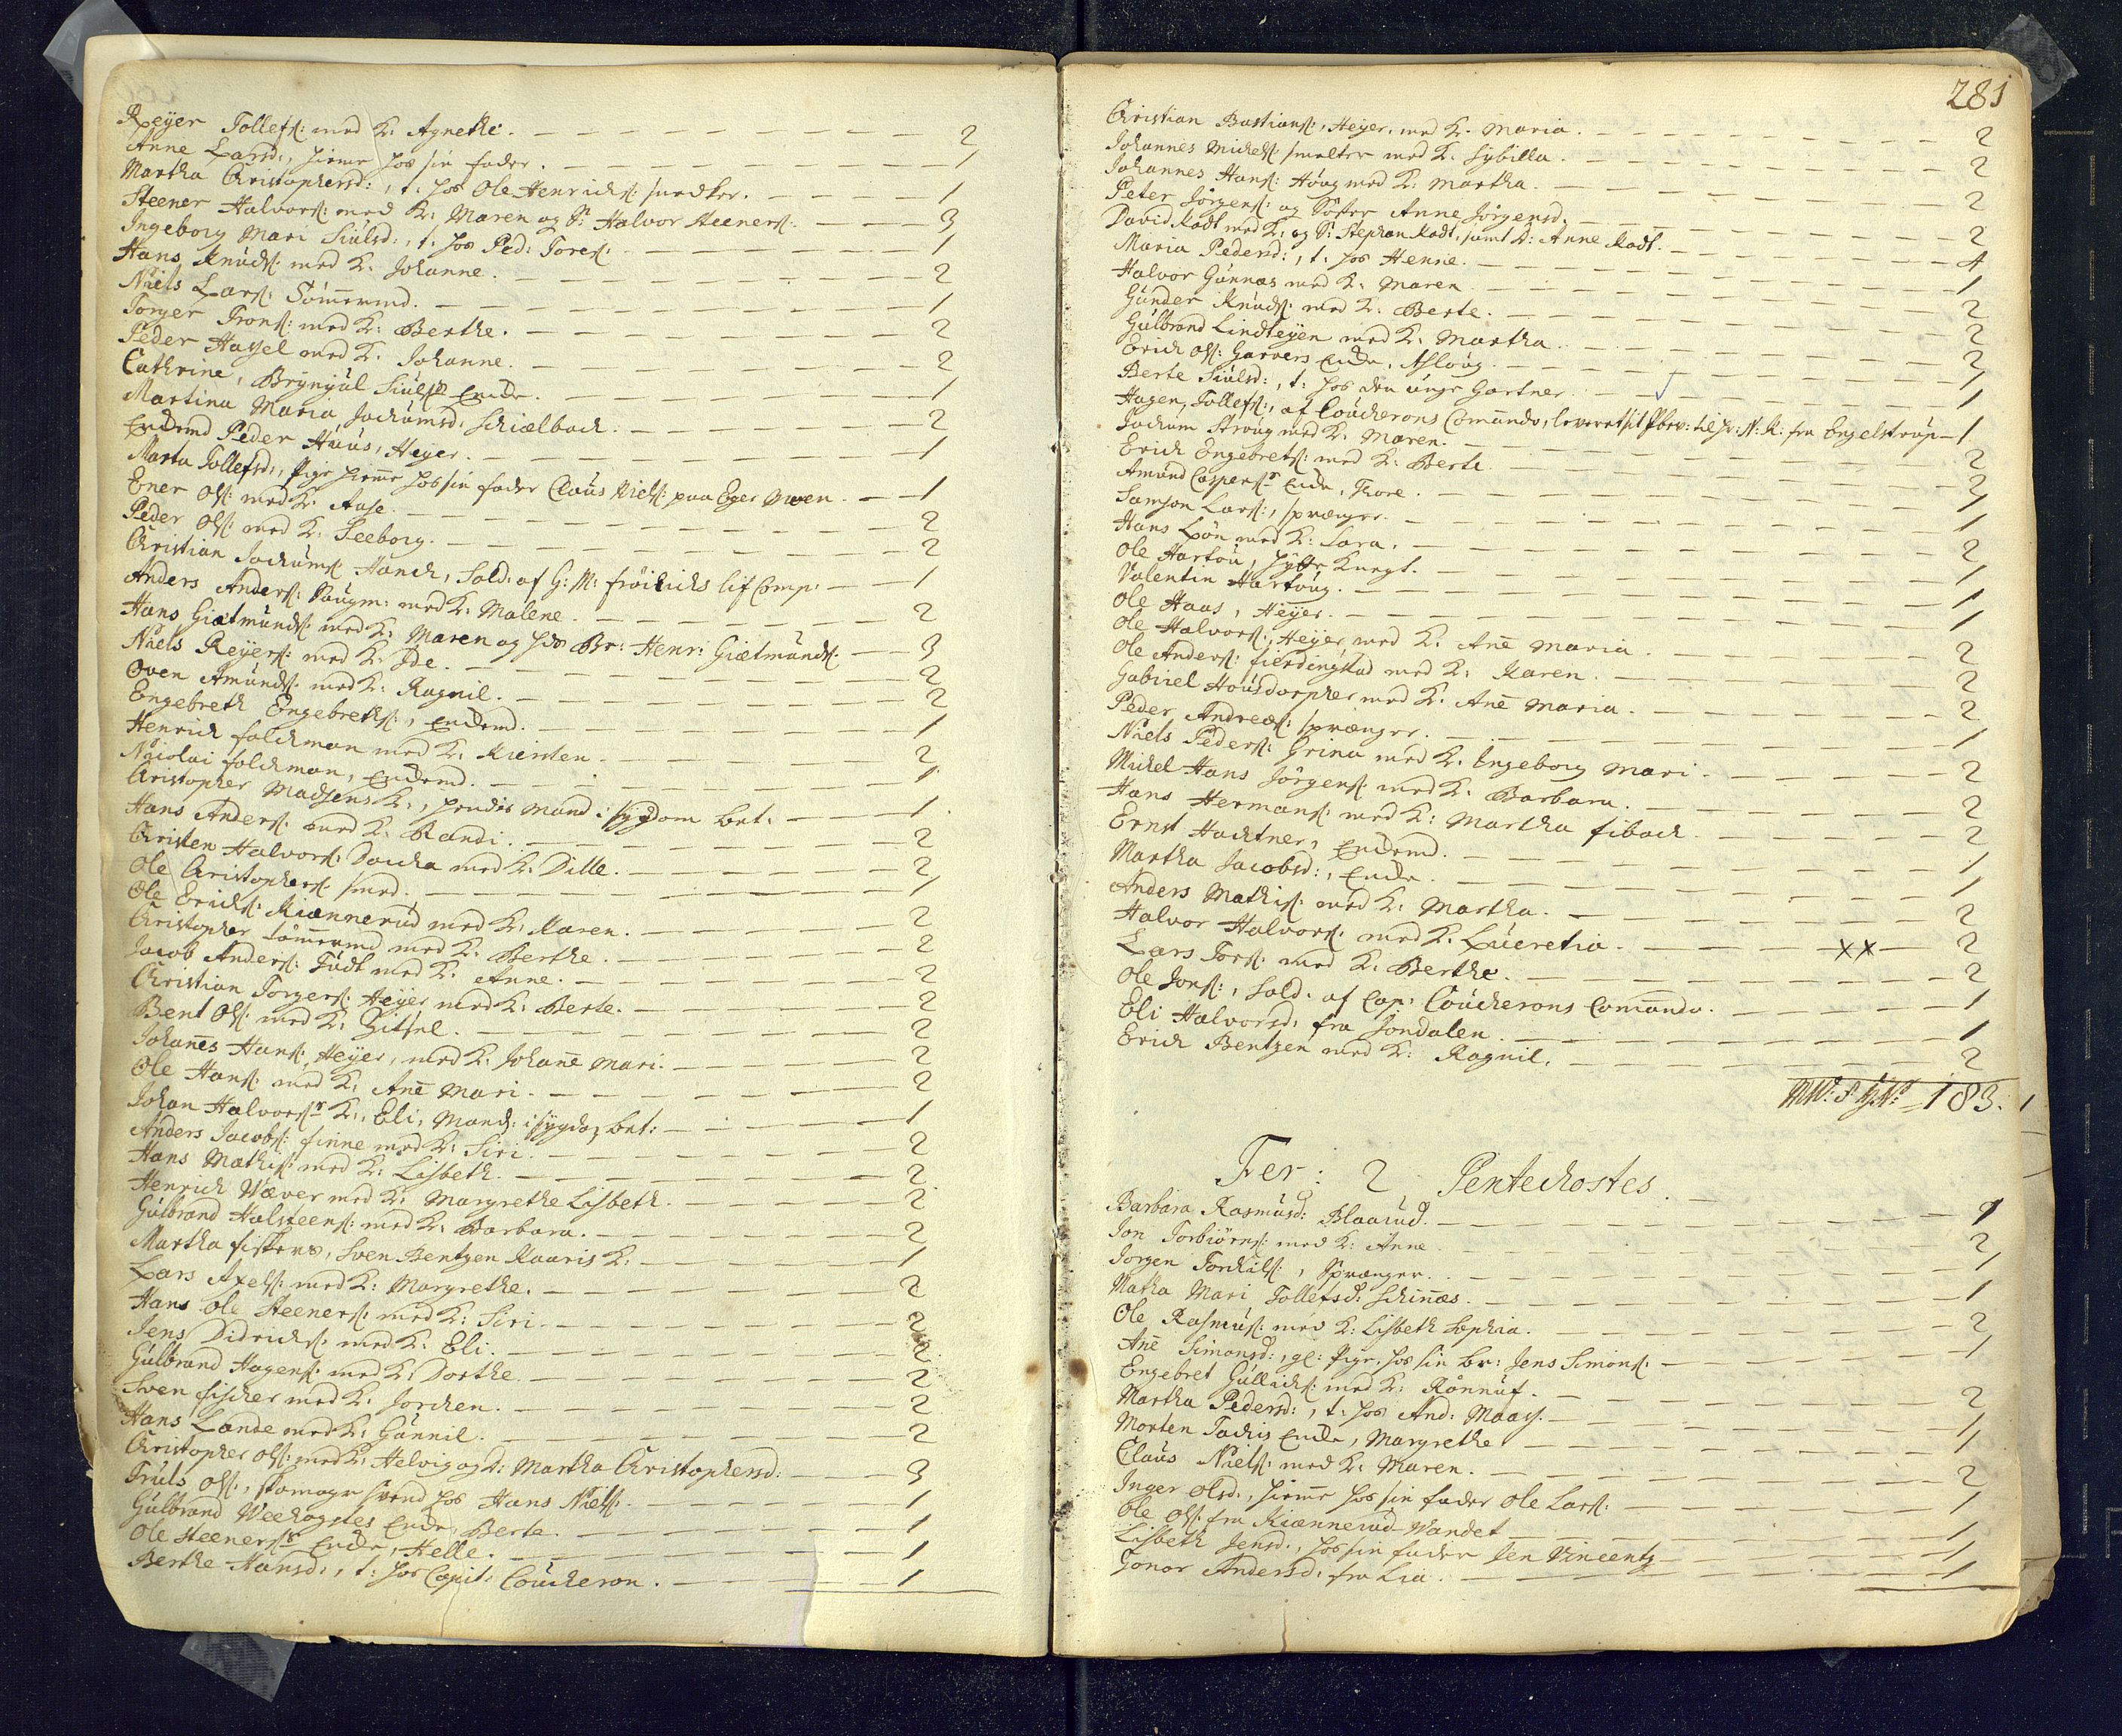 Reyer Tollefs: med K: Agnethe. 2
Anne Larsd:, hieme hos sin fader. 1
Martha Christophersd:, t: hos Ole Henrichs: snedker. 1
Steener Halvors: med K: Maren og S: Halvor Steeners: 3
Ingeborg Mari Siulsd:, t: hos Ped: Tores: 1
Hans Knuds: med K: Johanne. 2
Niels Lars: Tömermd. 1
Torger Trons: med K: Berthe. 2
Peder Hassel med K: Johanne. 2
Cathrine, Brynjul Siuls: Enche. 1
Martina Maria Jochumsd: Schiælbach. 2
Enchemd Peder Haus, Heyer. 1
Marta Tollefsd:, pige hieme hos sin fader Claus Niels: paa Eger Moen. 1
Ener Ols: med K: Aase. 2
Peder Ols: med K: Seeborg. 2
Christian Jochums: Hanch, Sold: af G: M: fröilichs lif Comp: 1
Anders Anders: Saugm: med K: Malene. 2
Hans Giætmunds: med K: Maren og hs Br: Henr: Giætmunds: 3
Niels Reyers: med K: Ide. 2
Oven Amunds: med K: Ragnil. 2
Engebreth Engebreths:, Enchemd. 1
Henrich folchman med K: Kiersten 2
Nicolai folchman, Enchemd. 1
Christopher Madsens K:, hendis Mand i sygdom bet: 1
Hans Anders: med K: Randi. 2
Christen Halvors: Doccka med K: Dille. 2
Ole Christophers: smed. 1
Ole Erichs: Kiænnerud med K: Maren. 2
Christopher Tömermd med K: Berthe. 2
Jacob Anders: Tudt med K: Anne. 2
Christian Torgers: Heyer med K: Berte. 2
Bent Ols: med K: Gitsel. 2
Johanes Hans: Heyer, med K: Johane Mari. 2
Ole Hans: med K: Ane Mari. 2
Johan Halvors: K:, Eli, Mand: i sygdom bet: 1
Anders Jacobs: finne med K: Siri. 2
Hans Mathis: med K: Lisbeth. 2
Henrich Wæver med K: Margrethe Lisbeth. 2
Gulbrand Halsteens: med K: Barbara. 2
Martha fiskers, Sven Bentzen Kaaris K: 1
Lars Axels: med K: Margrethe. 2
Hans Ole Steeners: med K: Siri. 2
Jens Didrichs: med K: Eli. 2
Gulbrand Hagens: med K: Dorthe 2
Sven fischer med K: Jorchen. 2
Hans Lande med K: Gunnil. 2
Christopher Ols: med K: Helvig og D: Martha Christophersd: 3
Truls Ols:, skomager svend hos Hans Niels: 1
Gulbrand Weehagstes Enche, Berte. 1
Ole Steeners: Enche, Helle. 1
Berthe Hansd:, t: hos Capit: Coucheron. 1
281
Christian Bastians:, Heyer, med K: Maria. 2
Johannes Michels: smelter med K: Sybilla. 2
Johannes Hans: Höug med K: Martha. 2
Peter Jörgens: og Söster Anne Jörgensd. 2
David Radt med K: og S: Stephan Radt, samt D: Anne Radt. 4
Maria Pedersd:, t: hos Henne. 1
Halvor Gunnæs med K: Maren. 2
Gunder Knuds: med K: Berte. 2
Gulbrand Lindteyen med K: Martha. 2
Erich Ols: Garvers Enche, Aslöug. 1
Berte Siulsd:, t: hos den unge Gartner 1
Hagen, Tollefs:, af Coucherons Comando, leveret sit Psbev: til Hr: N: K: fra Engelstrup 1
Jochum Aroug med K: Maren. 2
Erich Engebrets: med K: Berte. 2
Amund Caspers: Enche, Thore. 1
Samson Lars:, sprænger. 1
Hans Lön med K: Sara. 2
Ole Hartou, Hytte Knegt. 1
Valentin Hartoug. 1
Ole Haas, Heyer. 1
Ole Halvors:, Heyer, med K: Ane Maria. 2
Ole Anders: fierdingstad med K: Karen. 2
Gabriel Housdorpher med K: Ane Maria. 2
Peder Andreæs: sprænger. 1
Niels Peders: Grina med K: Ingeborg Mari. 2
Michel Hans Jörgens: med K: Barbara. 2
Hans Hermans: med K: Martha fibach. 2
Ernst Hachtner, Enchemd. 1
Martha Jacobsd:, Enche. 1
Anders Mathis: med K: Martha. 2
Halvor Halvors: med K: Lucretia. xx 2
Lars Tors: med K: Berthe. 2
Ole Jons:, Sold: af Cap: Coucherons Comando. 1
Eli Halvorsd: fra Sondalen. 1
Erich Bentzen med K: Ragnil. 2
183.
Fer: 2 Pentechostes.
Barbara Rasmusd: Blaarud. 1
Jon Torbiörns: med K: Anne. 2
Jörgen Torchils:, Sprænger. 1
Matha Mari Tollefsd: Schinæs. 1
Ole Rasmus: med K: Lisbeth Sophia. 2
Ane Simonsd:, gl: Pige, hos sin br: Jens Simons: 1
Engebret Gullichs: med K: Rönnuf. 2
Martha Pedersd:, t: hos And: Maas. 1
Morten Tachis Enche, Margrethe 1
Claus Niels: med K: Maren. 2
Inger Olsd:, hieme hos sin fader Ole Lars: 1
Ole Ols: fra Kiænnerud Vandet 1
Lisbeth Jensd:, hos sin fader Jen Vincentz 1
Gonor Andersd: fra Lia. 1